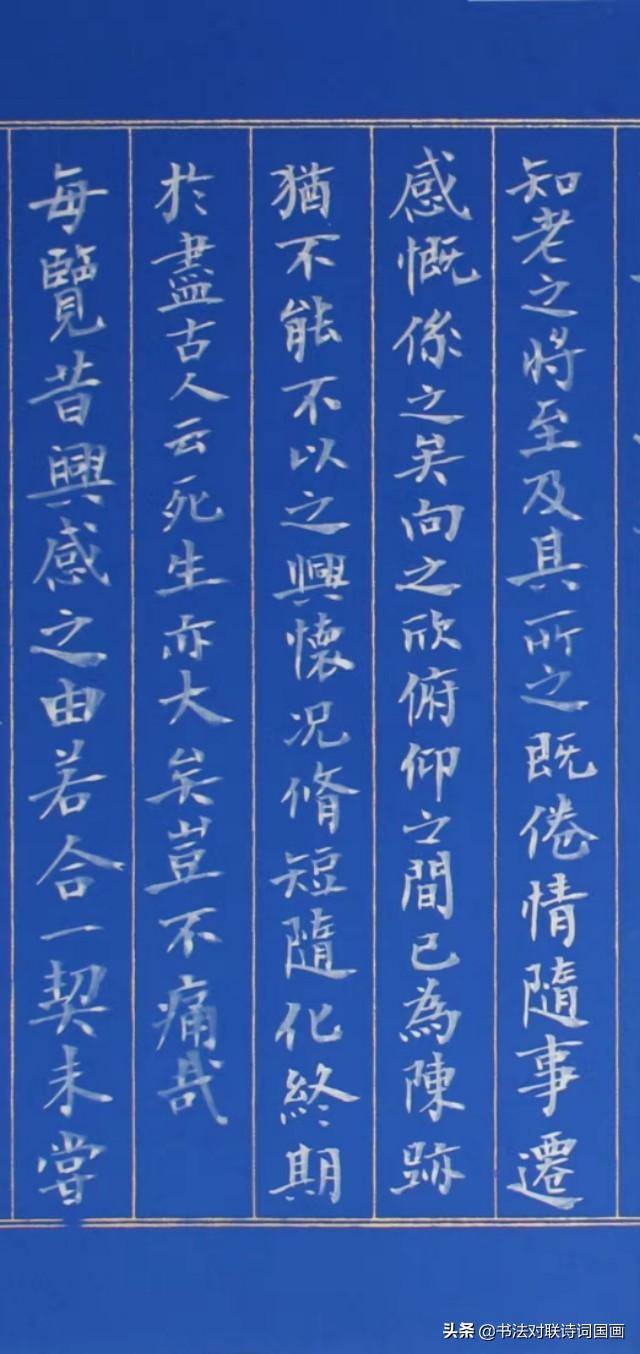 知老之將至及其所之既倦情隨事遷
感慨係之矣向之欣俯仰之間已為陳跡
猶不能不以之興懷况脩短隨化終期
於盡古人云死生亦大矣豈不痛哉
每覽昔興感之由若合一契未嘗
头条 @书法对联诗词国画